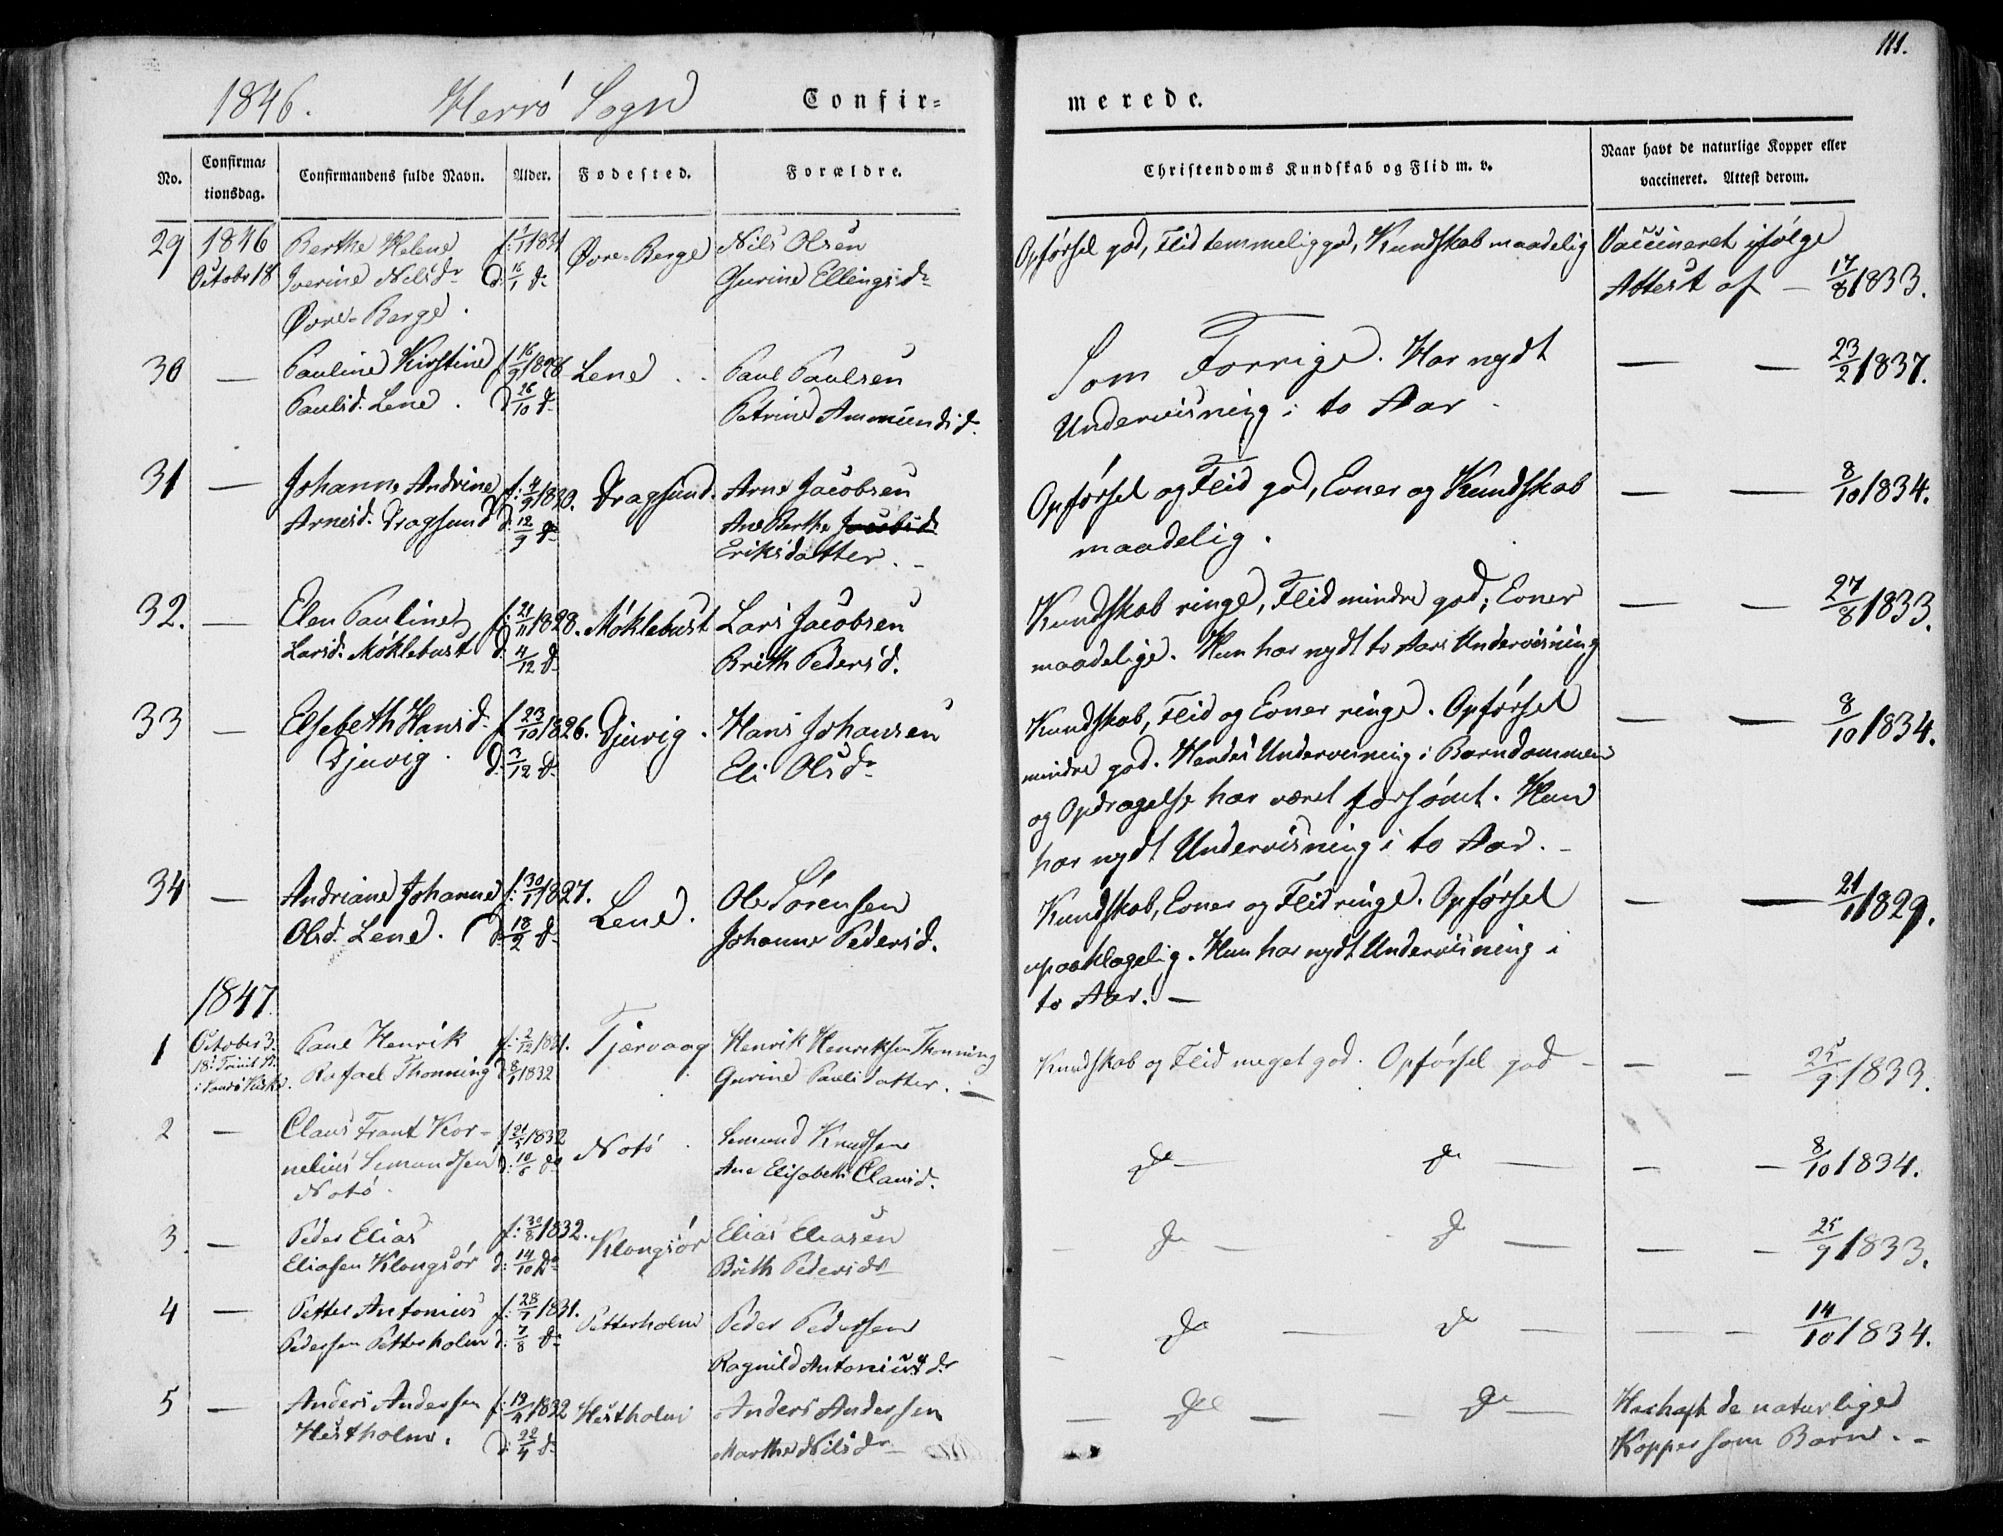 111.
1846. Herrö Sogn Confir= merede.
No. Confirmationsdag. Confirmandens fulde Navn. Alder. Fødested. Forældre. Christendoms Kundskab og Flid m. v. Naar havt de naturlige Kopper eller vaccineret. Attest derom.
29 1846 Berthe Helene f: 1/1 1831 Øvre-Berge Nils Olsen Opförsel god, Flid temmelig god, Kundskab maadelig Vaccineret ifölge
Octobr 18 Iverine Nilsdr d: 16/1 do Gurine Ellingsdr Attest af — 17/8 1833.
Øvre-Berge.
30 — Pauline Kirstine f 16/9 1828 Lene Paul Paulsen Som Forrige. Har nydt — — 23/2 1837.
Paulsd. Lene. d 26/10 do Petrine Ammundsd. Undervisning i to Aar.
31 — Johanne Andrine f: 4/9 1830. Dragsund. Arne Jacobsen Opförsel og Flid god, Evner og Kundskab — — 8/10 1834.
Arnesd. Dragsund d: 12/9 do Ane Berthe Jacobsd. maadelig.
Eriksdatter. -
32. — Elen Pauline f: 21/11 1828. Möklebust Lars Jacobsen Kundskab ringe, Flid mindre god, Evner — — 27/8 1833.
Larsd. Möklebust d. 4/12 do Brith Pedersd. maadelige. Hun har nydt to Aars Undervisning
33 — Elsebeth Hansd. f 23/10 1826. Djuvig. Hans Johansen Kundskab, Flid og Evner ringe. Opförsel — — 8/10 1834.
Djuvig. d. 3/12 do Eli Olsdr mindre god. Hendes Undervisning i Barndommen
og Opdragelse har været forsömt. Hun
har nydt Undervisning i to Aar. -
34 — Andriane Johanne f: 30/1 1827. Lene. Ole Sörensen Kundskab, Evner og Flid ringe. Opförsel — — 21/11 1829.
Olsd. Lene. d 18/2 do Johanne Pedersd. upaaklagelig. Hun har nydt Undervisning i
to Aar. —
1847.
1 October 3. Paul Henrik f: 2/12 1831. Tjærvaag Henrik Henriksen Thonning Kundskab og Flid meget god. Opförsel god — — — 25/9 1833.
18 S. Trinit. Rafael Thonning d 8/1 1832 Gurine Paulsdatter. —
2 — Claus Frant Kor- f 21/5 1832 Notö. Semund Knudsen do — do — — — 8/10 1834.
nelius Semundsen d: 10/6 do Ane Elisabeth Clausd.
Notö.
3. — Peder Elias f: 30/8 1832. Klongsör Elias Eliasen — do — do — — — 25/9 1833.
Eliasen Klongsör d: 14/10 do Brith Pedersdr
4 — Petter Antonius f: 28/7 1831. Petterholm Peder Pedersen do — do — — — 14/10 1834.
Pedersen Petterholm d. 7/8 do Ragnild Antoniusdr
5 — Anders Andersen f: 19/4 1832 Hestholm Anders Andersen — do — — do — Har havt de naturlige
Hestholm. d 22/4 do Marthe Nilsdr Kopper som Barn. -